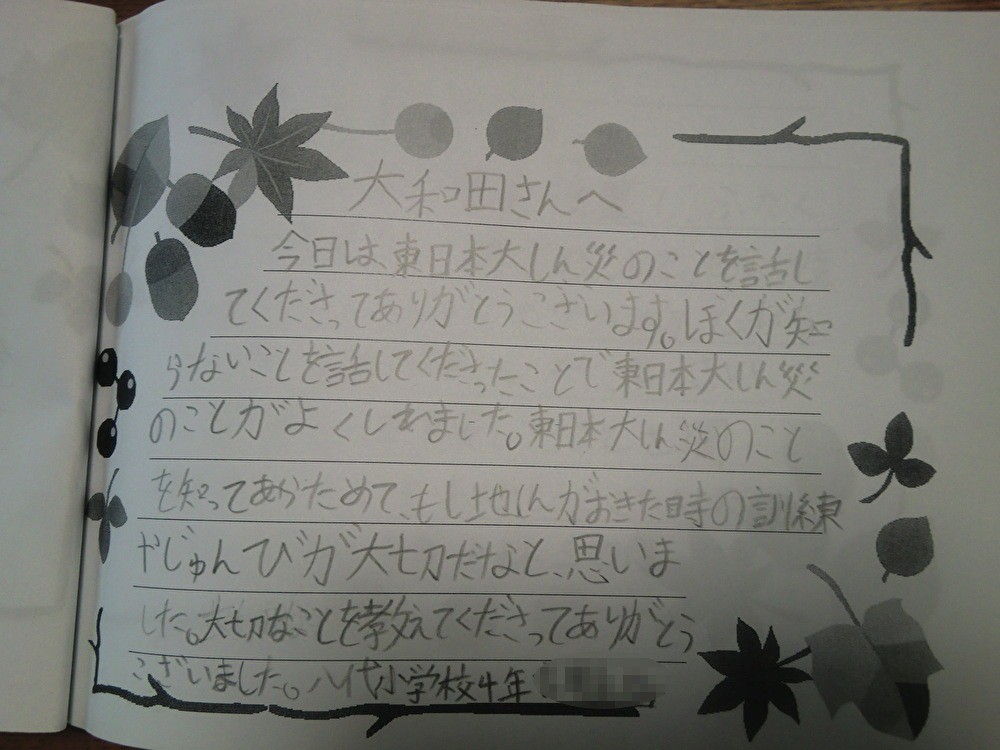 大和田さんへ
今日は、東日本大しん災のことを話し
てくださってありがとうございます。ぼくが知
らないことを話してくださったことで東日本大しん災
のことがよくしれました。東日本大しん災のこと
を知ってあらためて、もし地しんがおきた時の訓練
やじゅんびが大切だなと、思いま
した。大切なことを教えてくださってありがとう
ございました。八代小学校4年